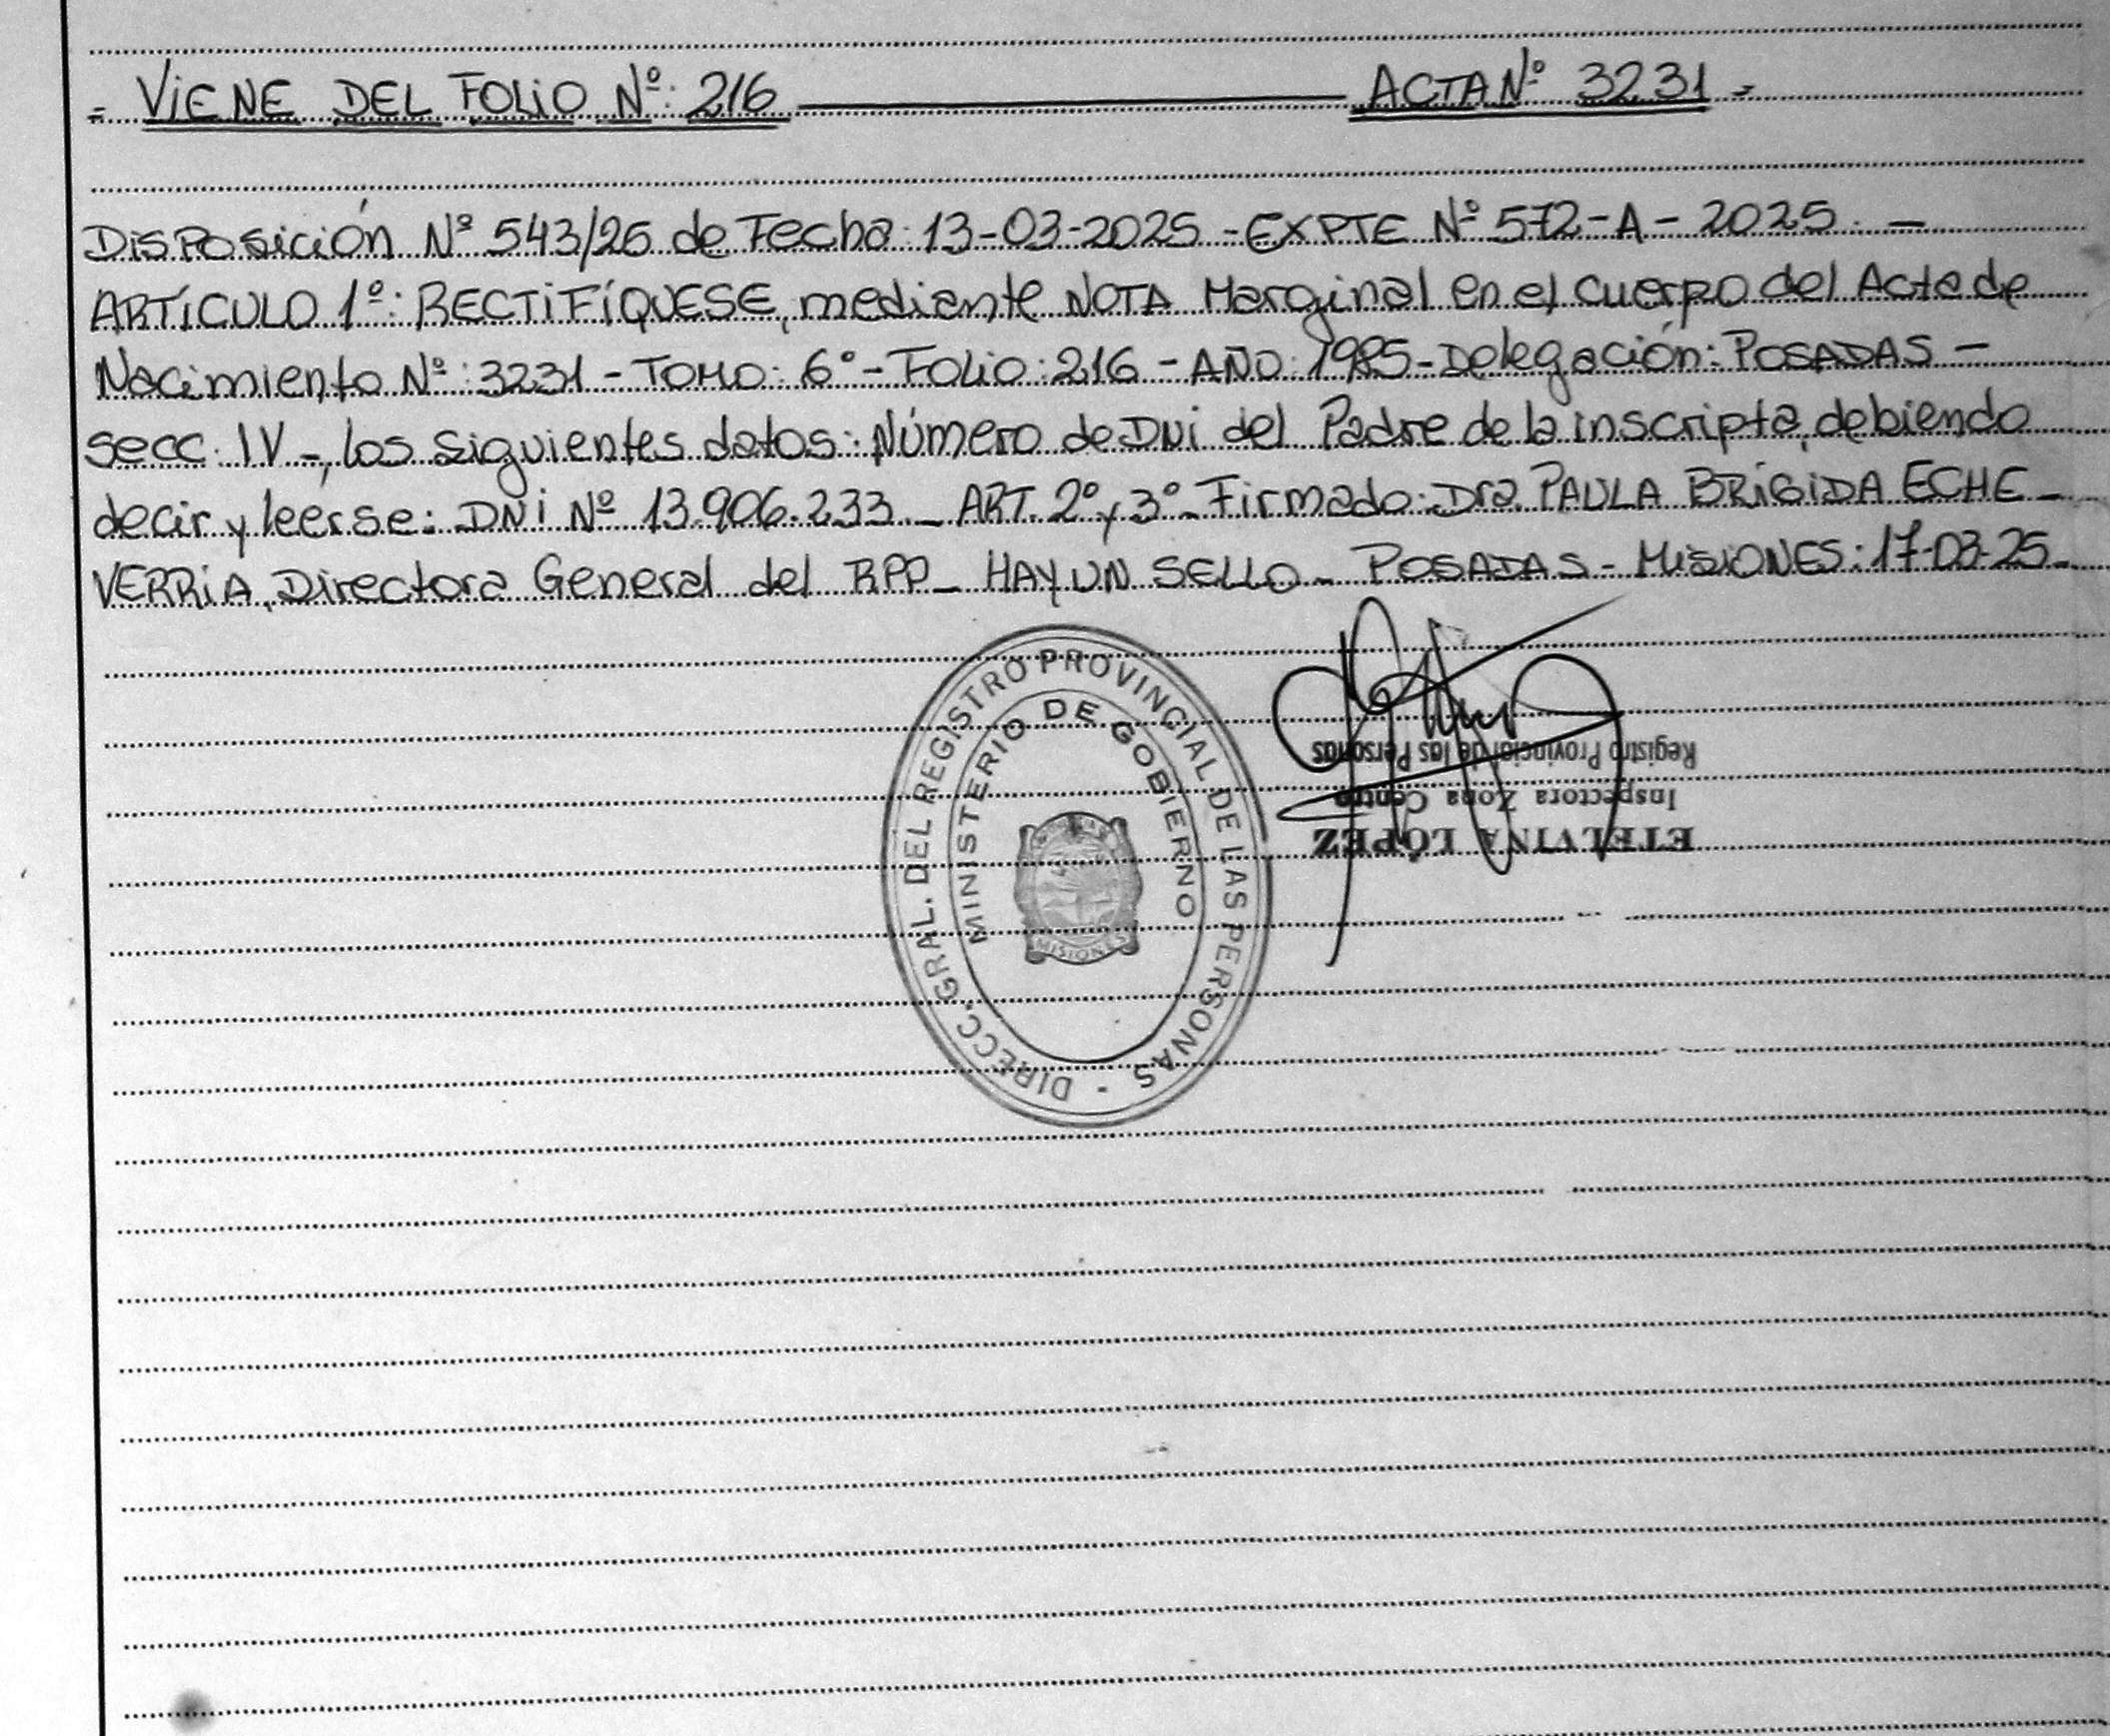 = VIENE DEL FOLIO Nº: 216 ACTA Nº 3231 =
DISPOSICIÓN Nº 543/25 de Fecha: 13-03-2025 - EXPTE Nº 572-A-2025. —
ARTÍCULO 1º: RECTIFÍQUESE, mediante NOTA Marginal en el cuerpo del Acta de
Nacimiento Nº: 3231 - TOMO: 6° - Folio: 216 - AÑO: 1985 - Delegación: POSADAS —
secc. IV -, los siguientes datos: Número de DNI del Padre de la inscripta, debiendo
decir y leerse: DNI Nº 13.906.233._ ART. 2° y 3°_ Firmado: Dra. PAULA BRÍGIDA ECHE_
VERRIA, Directora General del RPP_ HAY UN SELLO_ POSADAS - MISIONES: 17-03-25_
DIRECC. GRAL. DEL REGISTRO PROVINCIAL DE LAS PERSONAS -
MINISTERIO DE GOBIERNO
MISIONES
ETELVINA LÓPEZ
Inspectora Zona Centro
Registro Provincial de las Personas